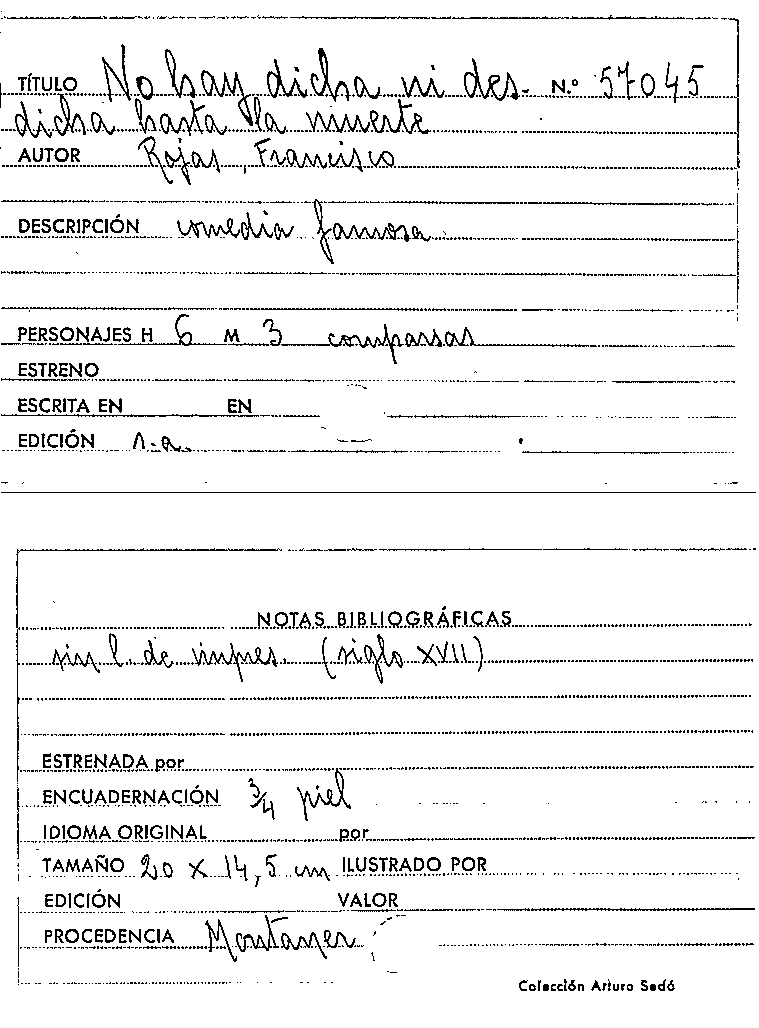 TÍTULO No hay dicha ni des- N.° 57045
dicha hasta la muerte
AUTOR Rojas, Francisco
DESCRIPCIÓN comedia famosa
PERSONAJES H 6 M 3 comparsas
ESTRENO
ESCRITA EN EN
EDICIÓN s.a.
NOTAS BIBLIOGRÁFICAS
sin l. de impres. (siglo XVII)
ESTRENADA por
ENCUADERNACIÓN 3/4 piel
IDIOMA ORIGINAL por
TAMAÑO 20 x 14,5 cm ILUSTRADO POR
EDICIÓN VALOR
PROCEDENCIA Montaner
Colección Arturo Sedó